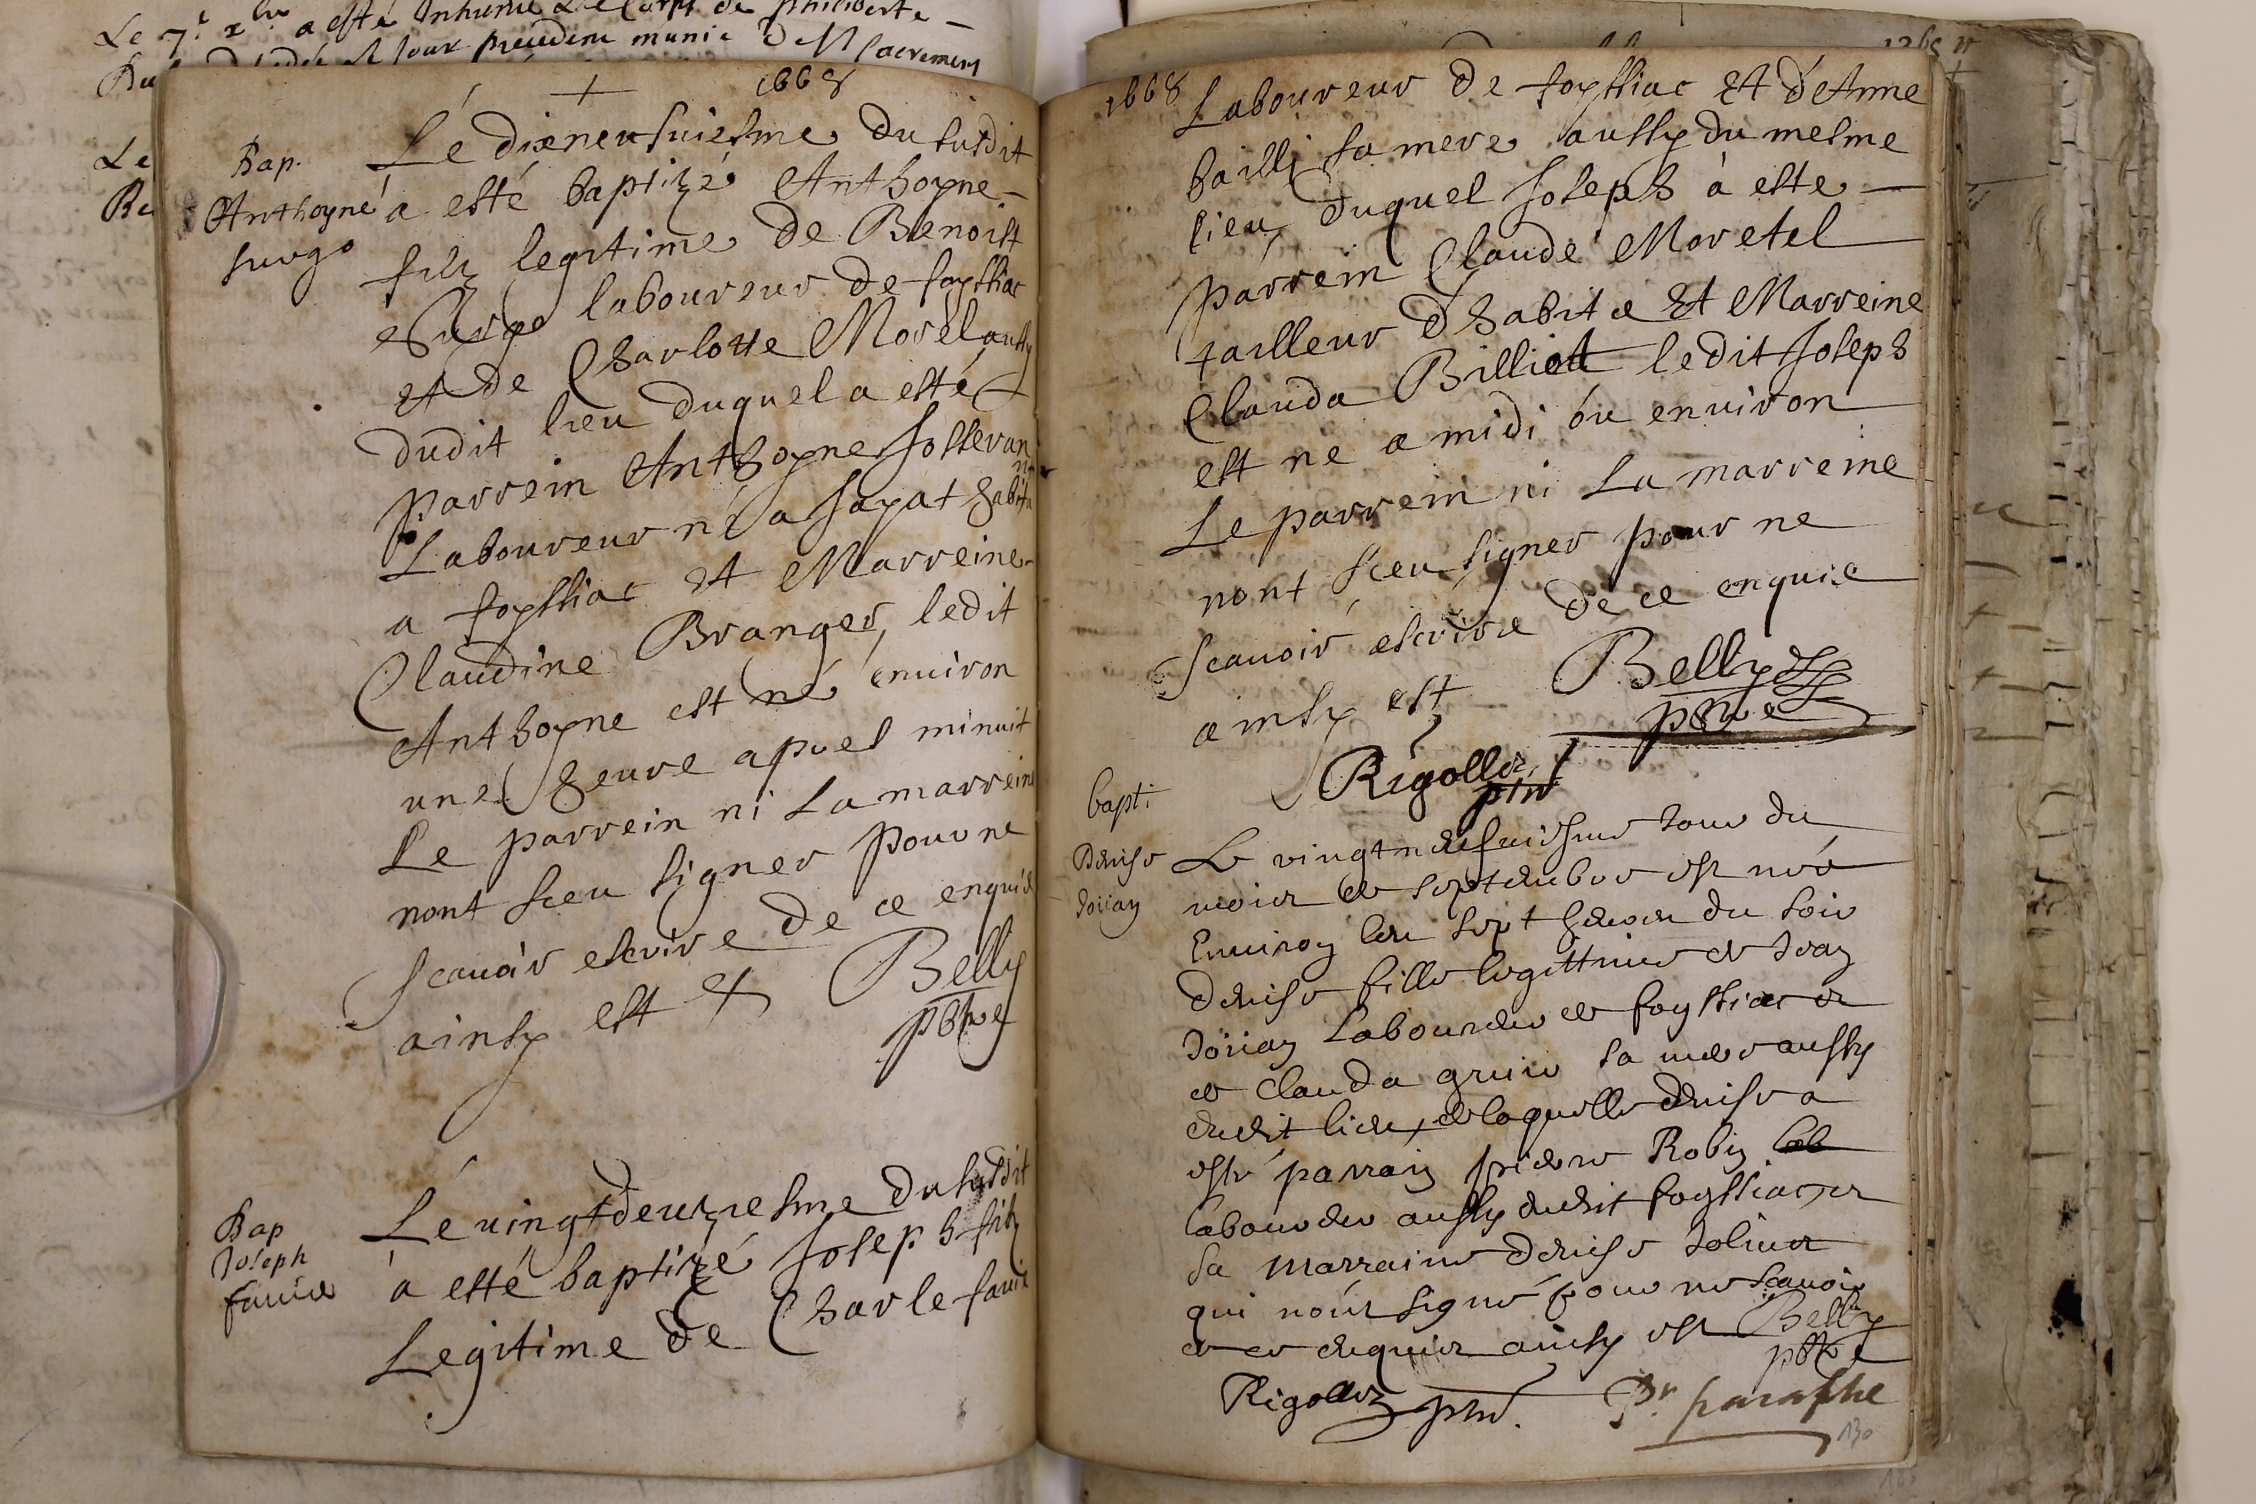 Le 7.e xbre a esté Inhumé Le Corps de philiberte
jour precedent munie des sacremens
1668
Bap.
Anthoyne
surgo
Lé dixneufuiesme du susdit
a esté baptizé Anthoyne
filz legitime de Benoist
Surge laboureur de foyssiac
et de Charlotte Morel aussy
dudit lieu duquel a esté
parrein Anthoyne Josseran
Laboureur né a Jayat habita
nt
a foyssiac et Marreine
Claudine Branger, ledit
Anthoyne est né environ
une heure apres minuit
Le parrein ni La marreine
nont sceu signer pour ne
scauoir escrire de ce enquis
ainsy est
Belly
pbtre
Bap
Joseph
fauie
Lé uingtdeuziesme du susdit
à esté baptizé Joseph filz
Legitime de Charle fauie
1668
Laboureur de foyssiac et d'Anne
bailli sa mere aussy du mesme
lieu duquel Joseph à este
parrein Claude Moretel
tailleur d'habit et Marreine
Clauda Billiot ledit Joseph
est ne a midi ou enuiron
Le parrein ni La marreine
nont sceu signer pour ne
scauoir escrire de ce enquis
ainsy est
Belly
pbtre
Rigollet
ptre
bapti
Denise
Joüan
Le vingtneufuiesme Jour du
mois de septembre est née
Enuiron les sept heures du soir
denise fille legittime de Jean
Joüan Laboureur de foyssiac et
de Clauda gruie sa mere aussy
dudit lieu, de laquelle denise a
esté parrain pierre Robin
laboureur aussy dudit foyssiac, et
sa marraine denise Joliuet
qui n'ont signé pour ne scauoir
de ce enquis ainsy est Belly
pbtre
Rigollet ptre.
Pr. paraphe
130